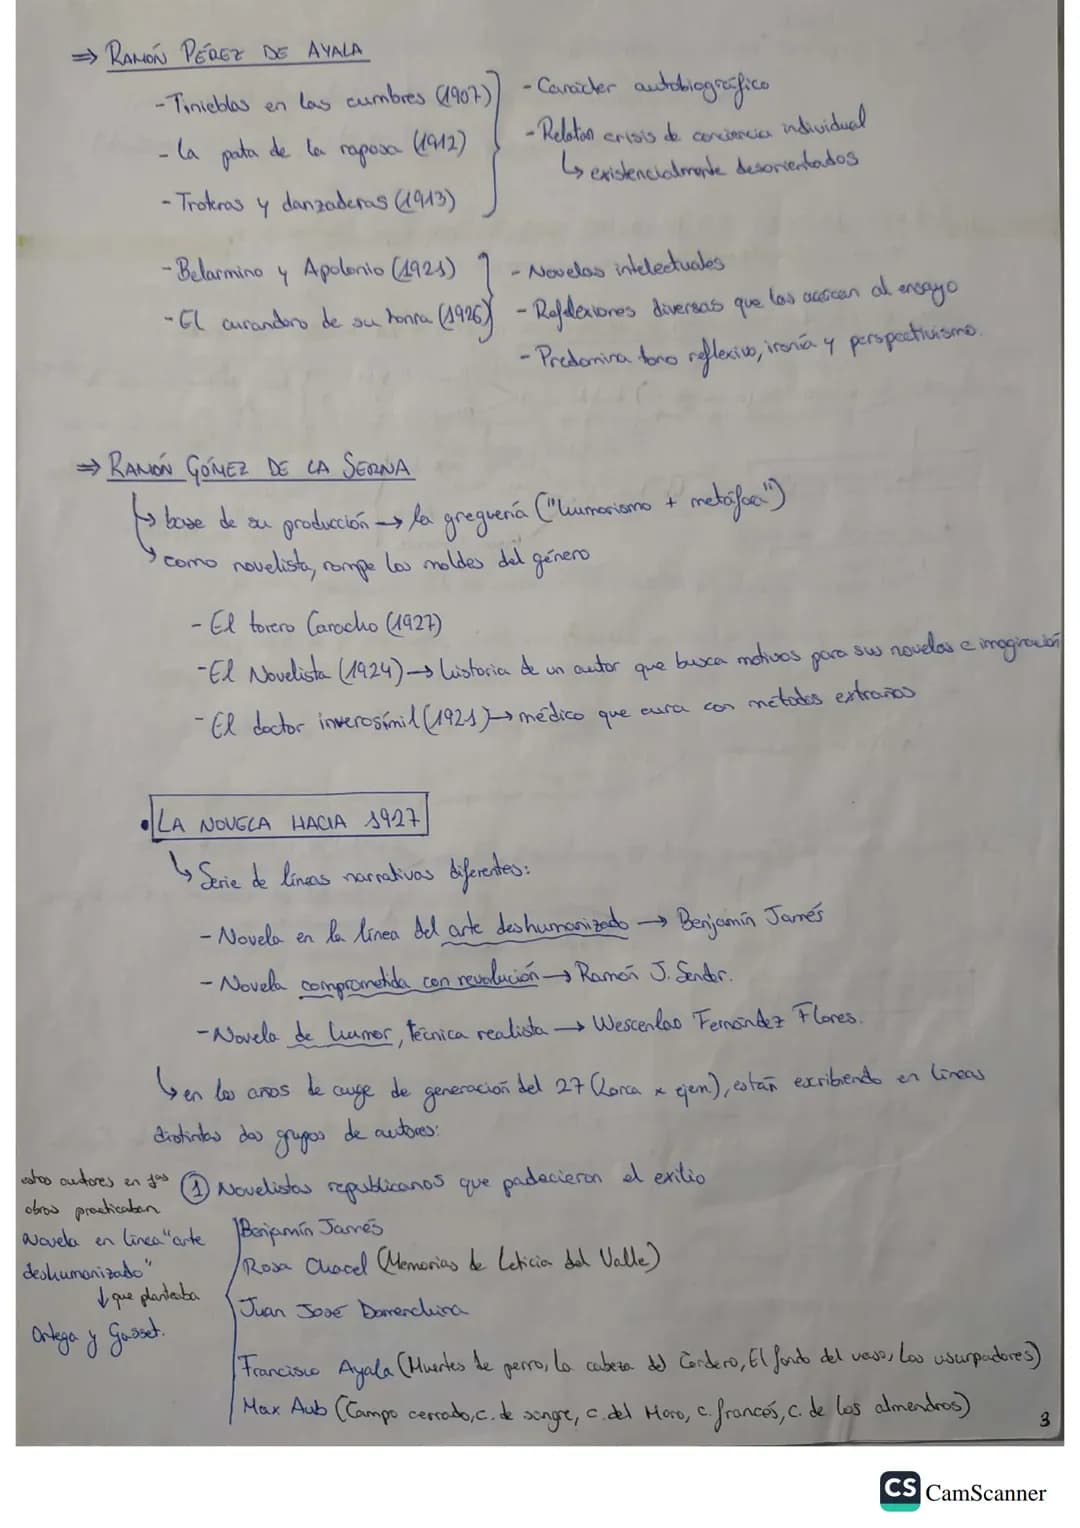 ⇒ RAMÓN PÉREZ DE AYALA
- Tinieblas en las cumbres (1907)
- La pata de la raposa (1912)
- Troteras y danzaderas (1913)
- Carácter autobiográfico
- Relatan crisis de conciencia individual
↳ existencialmente desorientados
- Belarmino y Apolonio (1921)
- El curandero de su honra (1926)
- Novelas intelectuales
- Refelexiones diversas que las acercan al ensayo
- Predomina tono reflexivo, ironía y perspectivismo.
⇒ RAMÓN GÓMEZ DE LA SERNA
↳ base de su producción → la greguería ("humorismo + metáfora")
↳ como novelista, rompe los moldes del género
- El torero Caracho (1927)
- El Novelista (1924) → historia de un autor que busca motivos para sus novelas e imaginación
- El doctor inverosímil (1921) → médico que cura con métodos extraños
• LA NOVELA HACIA 1927
↳ Serie de líneas narrativas diferentes:
- Novela en la línea del arte deshumanizado → Benjamín Jarnés
- Novela comprometida con revolución → Ramón J. Sender.
- Novela de humor, técnica realista → Wescenlao Fernández Flores.
↳ en los años de auge de generación del 27 (Lorca x ejem), están escribiendo en líneas
distintas dos grupos de autores:
① Novelistas republicanos que padecieron el exilio
estos autores en sus
obras practicaban
novela en línea "arte
deshumanizado"
↓ que planteaba
Ortega y Gasset.
Benjamín Jarnés
Rosa Chacel (Memorias de Leticia del Valle)
Juan José Domenchina
Francisco Ayala (Muertes de perro, La cabeza del Cordero, El fondo del vaso, Los usurpadores)
Max Aub (Campo cerrado, c. de sangre, c. del Moro, c. francés, c. de los almendros)
3
CS CamScanner